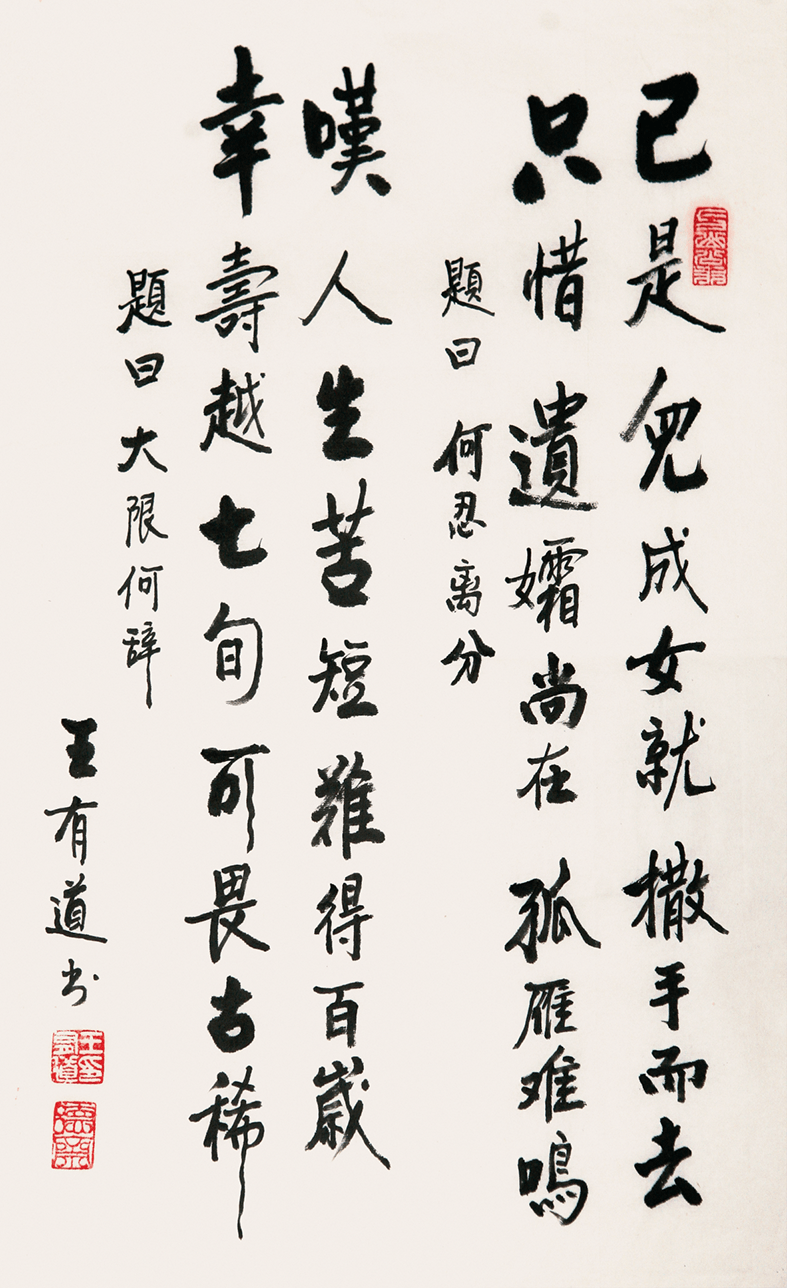 已是兒成女就撒手而去
只惜遺孀尚在孤雁难鳴
題曰 何忍离分
嘆人生苦短難得百歲
幸壽越七旬可畏古稀
題曰 大限何辞
王有道书
王印有道